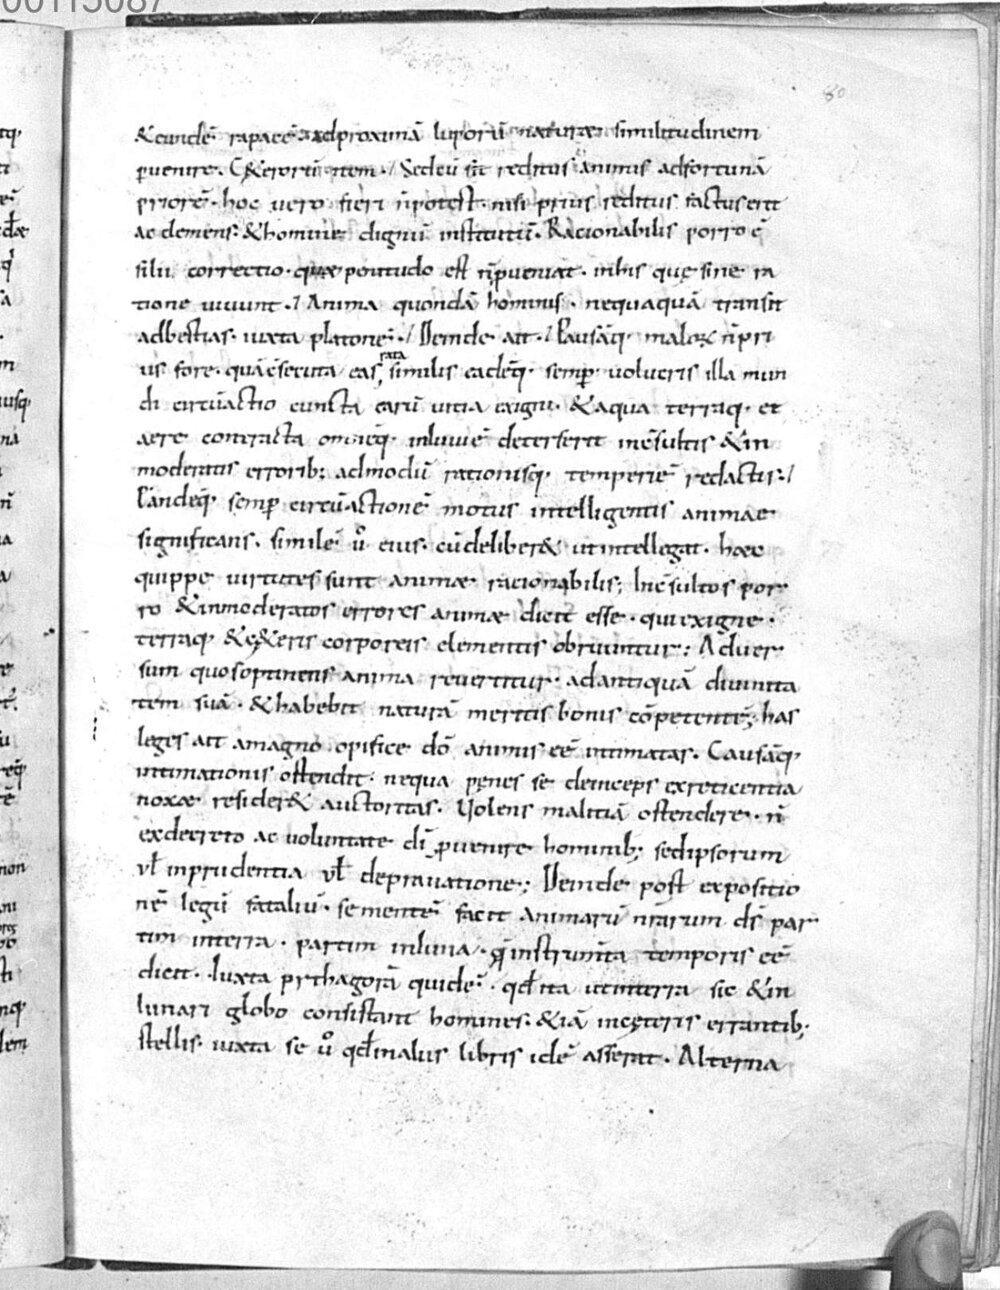 00115087
80
&eundē rapacē adproximā luporū naturae similitudinem
puenire. C&erorū item./ Sedeū sit reditus animis adfortunā
priorē. hoc uero fieri n̄potest. nisi prius reditus factus erit
ac clemens. &homine dignū institutū. Racionabilis porro ē
silii correctio. quae penitudo est n̄pueniat. inhis quę sine ra
tione uiuunt./ Anima quondā hominis. nequaquā transit
adbestias. iuxta platonē./ Deinde ait./ Pausāq; maloꝝ n̄pri
us fore. quāēsecuta eas, rata similis eadēq; semp uolueris illa mun
di circūactio cuncta earū uitia ex igni. &aqua terraq; et
aere contracta omnēq; inluuiē deterserit incōsultis &in
moderatis errorib; admodū rationisq; temperiē redactis./
Eandēq; semp circūactionē motus intelligentis animae
significans. similē ů eius. cūdeliber& ut intellegat. haec
quippe uirtutes sunt animae racionabilis; Incōsultos por
ro &inmoderatos errores animae dicit esse. qui ex igne.
terraq; &c&eris corporeis elementis obruuntur; Aduer
sum quos optinens anima reuertitur. ad antiquā diuinita
tem suā. &habebit naturā meritis bonis cōpetentē; has
leges ait a magno opifice dō animis eē intimatas. Causāq;
intimationis ostendit. nequa penes se deinceps ex reticentia
noxae resider& auctoritas. Volens malitiā ostendere. n̄
ex decreto ac uoluntate dī ꝓuenire hominib; sed ipsorum
vl̄ inprudentia vl̄ deprauatione; Deinde post expositio
nē legū fataliū. sementē facit animarū nr̄arum ds̄ par
tim interra. partim inluna. q̄ instrum̄ta temporis eē
dicit. Iuxta pythagorā quidē. qd̄ita ut interra sic &in
lunari globo consistant homines. &iā incęteris errantib;
stellis iuxta se ů qd̄ inalus libris idē asserat. Alterna